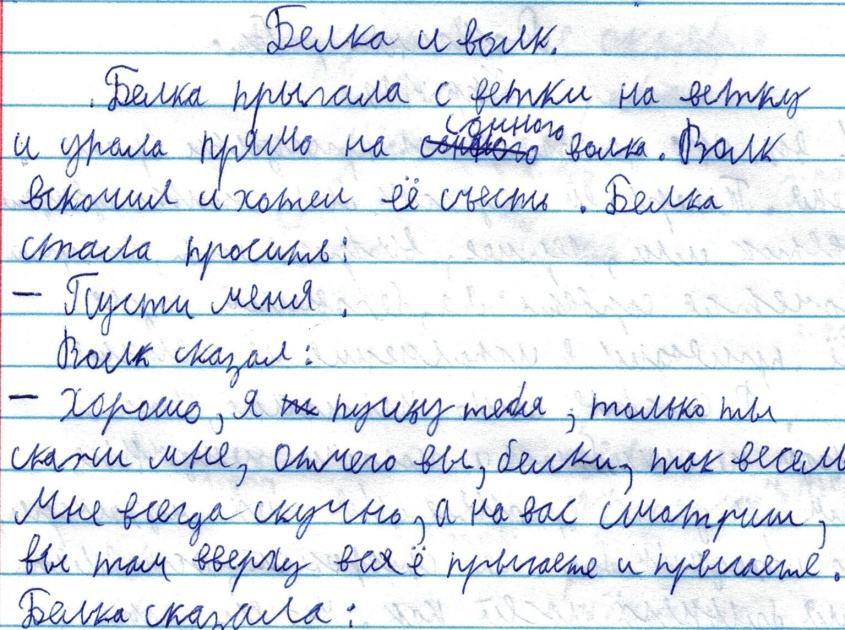 Белка и волк.
Белка прыгала с ветки на ветку
и урала прямо на сонного волка. Волк
вскочил и хотел её съесть. Белка
стала просить:
— Пусти меня.
Волк сказал:
— Хорошо, я пущу тебя, только ты
скажи мне, отчего вы, белки, так весел
Мне всегда скучно, а на вас смотриш,
вы там вверху вся ё прыгаете и прыгаете.
Белка сказала: